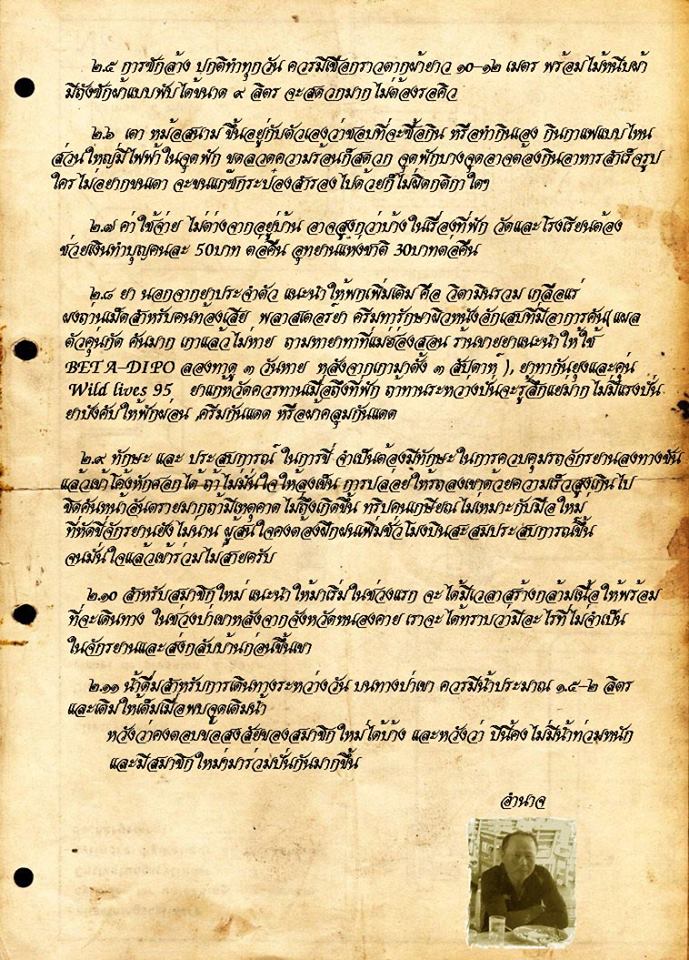 ๒.๕ การซักล้าง ปกติทำทุกวัน ควรมีเชือกราวตากผ้ายาว ๑๐-๑๒ เมตร พร้อมไม้หนีบผ้า
มีถังซักผ้าแบบพับได้ขนาด ๙ ลิตร จะสดวกมากไม่ต้องรอคิว
๒.๖ เตา หม้อสนาม ขึ้นอยู่กับตัวเองว่าชอบที่จะซื้อกิน หรือทำกินเอง กินกาแฟแบบไหน
ส่วนใหญ่มีไฟฟ้าในจุดพัก ขดลวดความร้อนก็สดวก จุดพักบางจุดอาจต้องกินอาหารสำเร็จรูป
ใครไม่อยากขนเตา จะขนแก๊ซกระป๋องสำรองไปด้วยก็ไม่ผิดกติกาใดๆ
๒.๗ ค่าใช้จ่าย ไม่ต่างจากอยู่บ้าน อาจสูงกว่าบ้างในเรื่องที่พัก วัดและโรงเรียนต้อง
ช่วยเงินทำบุญคนละ 50บาท ต่อคืน อุทยานแห่งชาติ 30บาทต่อคืน
๒.๘ ยา นอกจากยาประจำตัว แนะนำให้พกเพิ่มเติม คือ วิตามินรวม เกลือแร่
ผงถ่านเม็ดสำหรับคนท้องเสีย พลาสเตอร์ยา ครีมทารักษาผิวหนังอักเสบที่มีอาการคัน( แผล
ตัวคุ่นกัด คันมาก เกาแล้วไม่หาย ถามหายาทาที่แม่ฮ่องสอน ร้านขายยาแนะนำให้ใช้
BETA-DIPO ลองทาดู ๓ วันหาย หลังจากเกามาตั้ง ๓ สัปดาห์ ), ยาทากันยุงและคุ่น
Wild lives 95 ยาแก้หวัดควรทานเมื่อถึงที่พัก ถ้าทานระหว่างปั่นจะรู้สึกแย่มาก ไม่มีแรงปั่น
ยาบังคับให้พักผ่อน ,ครีมกันแดด หรือผ้าคลุมกันแดด
๒.๙ ทักษะ และ ประสบการณ์ ในการขี่ จำเป็นต้องมีทักษะในการควบคุมรถจักรยานลงทางชัน
แล้วเข้าโค้งหักศอกได้ ถ้าไม่มั่นใจให้จูงเข็น การปล่อยให้รถลงเขาด้วยความเร็วสูงเกินไป
ชิดคันหน้าอันตรายมากถ้ามีเหตุคาดไม่ถึงเกิดขึ้น ทริปคนเกษียณไม่เหมาะกับมือใหม่
ที่หัดขี่จักรยานยังไม่นาน ผู้สนใจคงต้องฝึกฝนเพิ่มชั่วโมงบินสะสมประสบการณ์ขึ้น
จนมั่นใจแล้วเข้าร่วมไม่สายครับ
๒.๑๐ สำหรับสมาชิกใหม่ แนะนำให้มาเริ่มในช่วงแรก จะได้มีเวลาสร้างกล้ามเนื้อให้พร้อม
ที่จะเดินทาง ในช่วงป่าเขาหลังจากจังหวัดหนองคาย เราจะได้ทราบว่ามีอะไรที่ไม่จำเป็น
ในจักรยานและส่งกลับบ้านก่อนขึ้นเขา
๒.๑๑ น้ำดื่มสำหรับการเดินทางระหว่างวัน บนทางป่าเขา ควรมีน้ำประมาณ ๑.๕-๒ ลิตร
และเติมให้เต็มเมื่อพบจุดเติมน้ำ
หวังว่าคงตอบข้อสงสัยของสมาชิกใหม่ได้บ้าง และหวังว่า ปีนี้คงไม่มีน้ำท่วมหนัก
และมีสมาชิกใหม่ๆมาร่วมปั่นกันมากขึ้น
อำนาจ